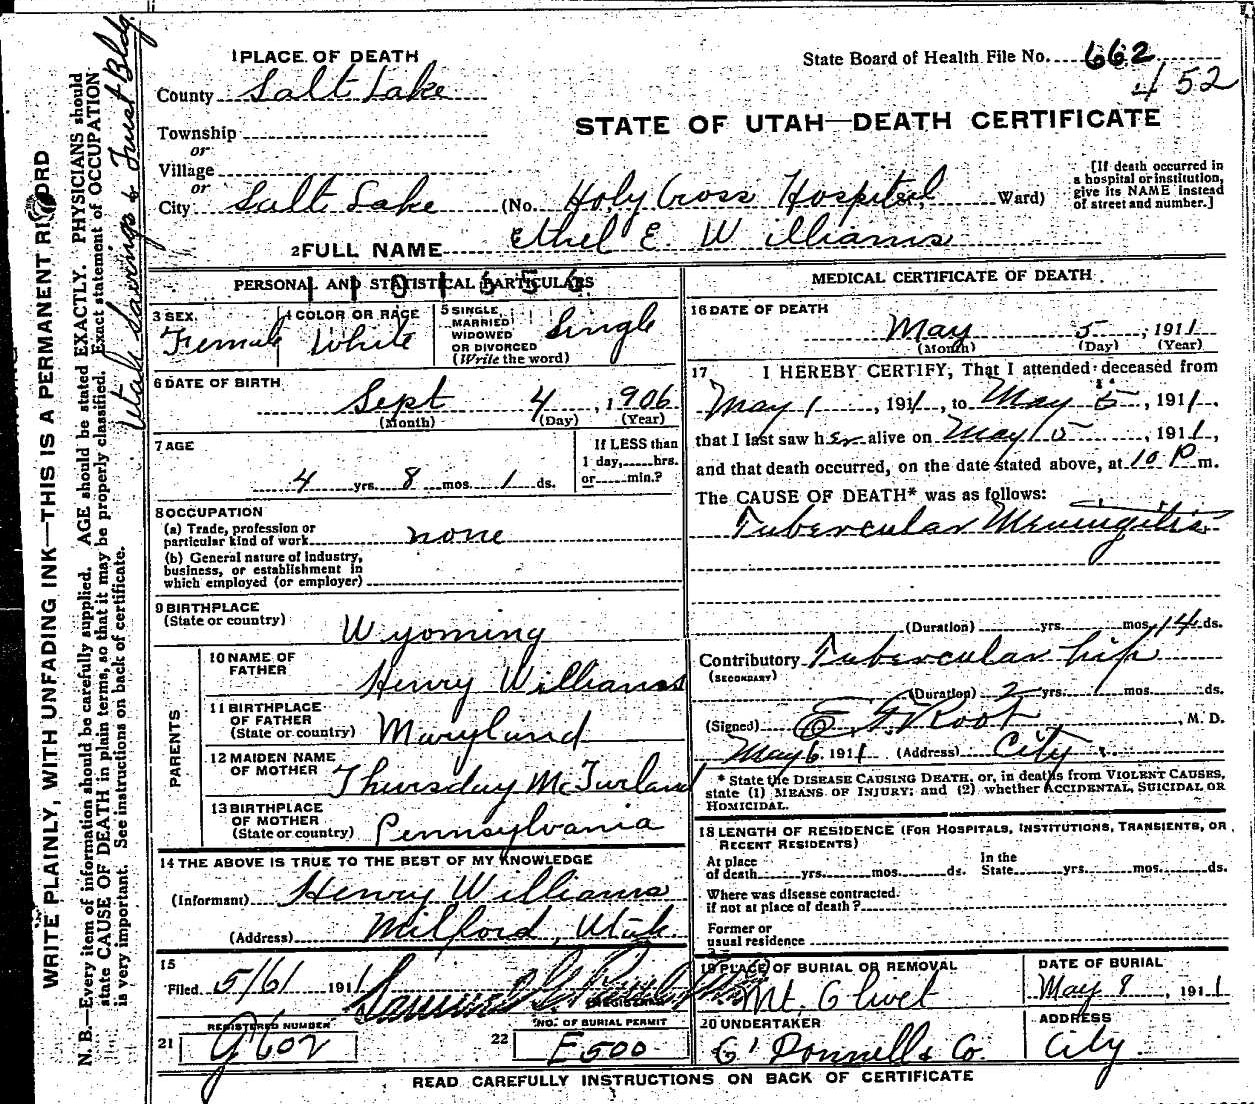 1 PLACE OF DEATH
State Board of Health File No. 662
452
County Salt Lake
STATE OF UTAH—DEATH CERTIFICATE
Township
or
Village
or
City Salt Lake (No. Holy Cross Hospital Ward)
[If death occurred in
a hospital or institution,
give its NAME instead
of street and number.]
2 FULL NAME Ethel E. Williams
PERSONAL AND STATISTICAL PARTICULARS
3 SEX
Female
4 COLOR OR RACE
White
5 SINGLE
MARRIED
WIDOWED
OR DIVORCED
(Write the word)
Single
6 DATE OF BIRTH
Sept 4, 1906
(Month) (Day) (Year)
7 AGE
4 yrs. 8 mos. 1 ds.
If LESS than
1 day, hrs.
or min.?
8 OCCUPATION
(a) Trade, profession or
particular kind of work none
(b) General nature of industry,
business, or establishment in
which employed (or employer)
9 BIRTHPLACE
(State or country)
Wyoming
PARENTS
10 NAME OF
FATHER
Henry Williams
11 BIRTHPLACE
OF FATHER
(State or country) Maryland
12 MAIDEN NAME
OF MOTHER Thursday McFurland
13 BIRTHPLACE
OF MOTHER
(State or country) Pennsylvania
14 THE ABOVE IS TRUE TO THE BEST OF MY KNOWLEDGE
(Informant) Henry Williams
(Address) Milford, Utah
15
Filed 5/6/ 1911
REGISTERED NUMBER
21 G602
NO. OF BURIAL PERMIT
22 E500
MEDICAL CERTIFICATE OF DEATH
16 DATE OF DEATH
May 5, 1911
(Month) (Day) (Year)
17 I HEREBY CERTIFY, That I attended deceased from
May 1, 1911, to May 5, 1911,
that I last saw her alive on May 5, 1911,
and that death occurred, on the date stated above, at 10 P m.
The CAUSE OF DEATH* was as follows:
Tubercular Meningitis
(Duration) yrs. mos. 14 ds.
Contributory Tubercular hip
(SECONDARY)
(Duration) 2 yrs. mos. ds.
(Signed) E. F. Root, M. D.
May 6 1911 (Address) City
* State the DISEASE CAUSING DEATH, or, in deaths from VIOLENT CAUSES,
state (1) MEANS OF INJURY; and (2) whether ACCIDENTAL, SUICIDAL OR
HOMICIDAL.
18 LENGTH OF RESIDENCE (FOR HOSPITALS, INSTITUTIONS, TRANSIENTS, OR
RECENT RESIDENTS)
At place
of death yrs. mos. ds.
In the
State yrs. mos. ds.
Where was disease contracted.
if not at place of death?
Former or
usual residence
19 PLACE OF BURIAL OR REMOVAL
Mt. Olivet
DATE OF BURIAL
May 8, 1911
20 UNDERTAKER
O'Donnell & Co.
ADDRESS
City
READ CAREFULLY INSTRUCTIONS ON BACK OF CERTIFICATE
WRITE PLAINLY, WITH UNFADING INK—THIS IS A PERMANENT RECORD
N. B.—Every item of information should be carefully supplied. AGE should be stated EXACTLY. PHYSICIANS should
state CAUSE OF DEATH in plain terms, so that it may be properly classified. Exact statement of OCCUPATION
is very important. See instructions on back of certificate.
Utah Savings & Trust Bldg.